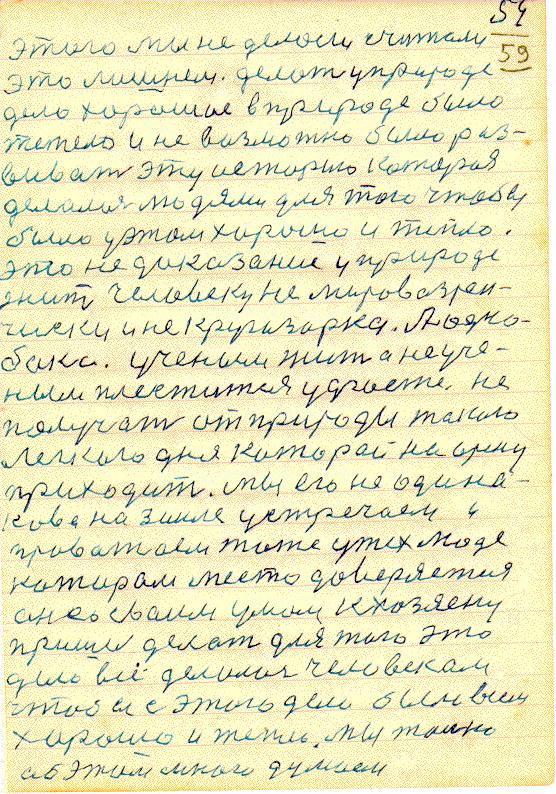 54
59
этого мы не делоем считаем
это лишнем. делат у природе
дело хорошое в природе было
тежело и не возможно было раз-
виват эту историю которая
делалоя людями для того чтобы
было у этом хорошо и тепло.
это не доказание у природе
жит человеку не мировозрен-
чиску и не
бака. ученым жит а неуче-
ным плестится у хросте. не
получат от природы такого
легкого дня который на арену
приходит. мы его не одина-
кова на земле устречаем и
проважаем тоже у тех люде
которам место доверяется
он со сваим умом к хозяену
пришол делат для того это
дело всё делалоя человекам
чтобы с этого дело было всем
хорошо и тепло. мы только
аб этом много думаем